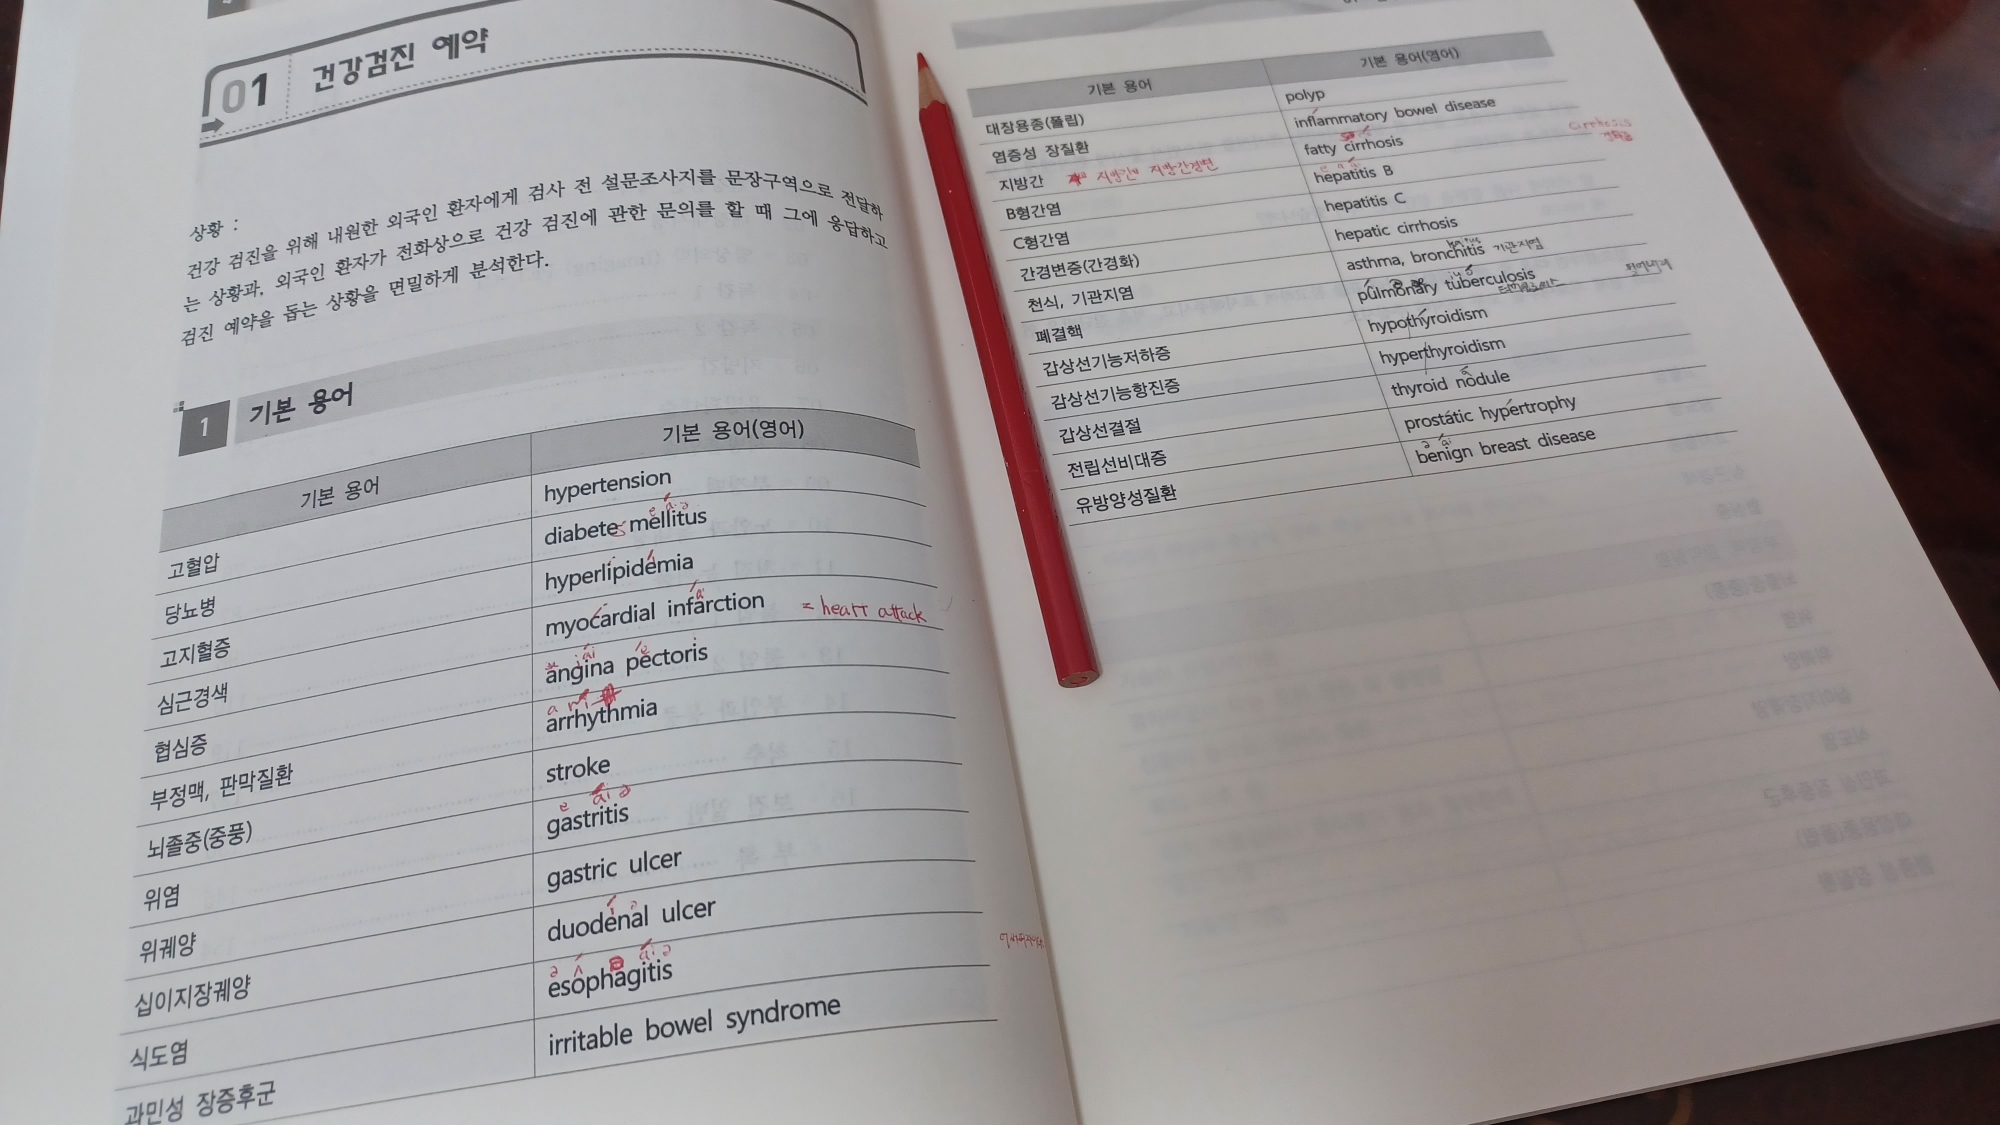 01 건강검진 예약
상황 :
건강 검진을 위해 내원한 외국인 환자에게 검사 전 설문조사지를 문장구역으로 전달하
는 상황과, 외국인 환자가 전화상으로 건강 검진에 관한 문의를 할 때 그에 응답하고
검진 예약을 돕는 상황을 면밀하게 분석한다.
1 기본 용어
기본 용어 기본 용어(영어)
고혈압 hypertension
당뇨병 diabete mellitus
고지혈증 hyperlipidemia
심근경색 myocardial infarction = heart attack
협심증 angina pectoris
부정맥, 판막질환 arrhythmia
뇌졸중(중풍) stroke
위염 gastritis
위궤양 gastric ulcer
십이지장궤양 duodenal ulcer
식도염 esophagitis
과민성 장증후군 irritable bowel syndrome
기본 용어 기본 용어(영어)
대장용종(폴립) polyp
염증성 장질환 inflammatory bowel disease
지방간 지방간 지방간경변 fatty cirrhosis cirrhosis
B형간염 hepatitis B
C형간염 hepatitis C
간경변증(간경화) hepatic cirrhosis
천식, 기관지염 asthma, bronchitis 기관지염
폐결핵 pulmonary tuberculosis
갑상선기능저하증 hypothyroidism
감상선기능항진증 hyperthyroidism
갑상선결절 thyroid nodule
전립선비대증 prostatic hypertrophy
유방양성질환 benign breast disease